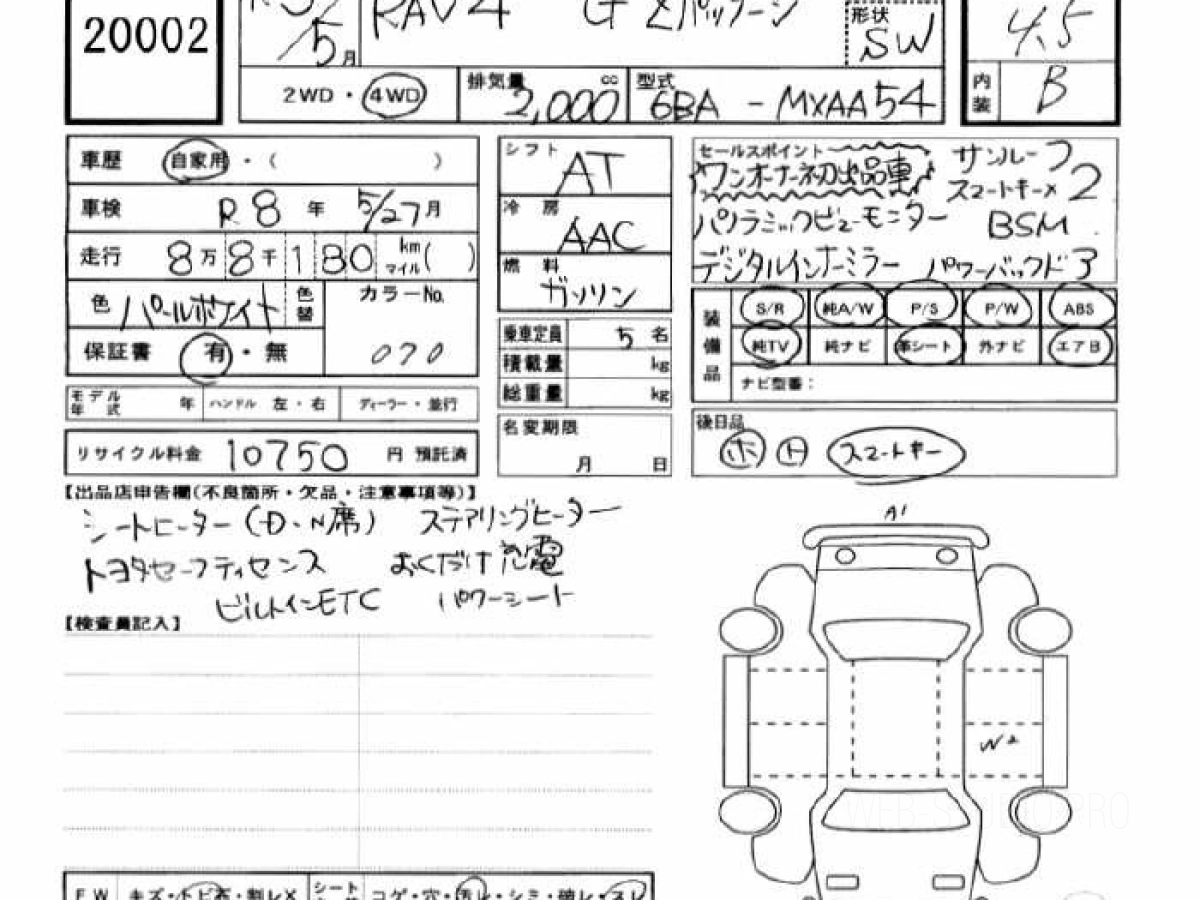 20002
5月
RAV4 G Zパッケージ
形状
SW
4.5
2WD・4WD
排気量 2,000 cc
型式 6BA - MXAA54
内装 B
車歴 自家用・( )
車検 R8年 5/27月
走行 8万8千180 km マイル( )
色 パールホワイト 色替
カラーNo. 070
保証書 有・無
モデル年式 年 ハンドル 左・右 ディーラー・並行
リサイクル料金 10750 円 預託済
シフト AT
冷房 AAC
燃料 ガソリン
乗車定員 5名
積載量 kg
総重量 kg
名変期限
月 日
セールスポイント
ワンオーナー初出品車 サンルーフ
スマートキー×2
パノラミックビューモニター BSM
デジタルインナーミラー パワーバックドア
装備品
S/R 純A/W P/S P/W ABS
純TV 純ナビ 革シート 外ナビ エアB
ナビ型番:
後日品
ホ ト スマートキー
【出品店申告欄(不良箇所・欠品・注意事項等)】
シートヒーター(D・N席) ステアリングヒーター
トヨタセーフティセンス おくだけ充電
ビルトインETC パワーシート
【検査員記入】
A1
W2
WEB-STUDIO.PRO
FW キズ・トビ石・割レX シート コゲ・穴・汚レ・シミ・破レ・スレ